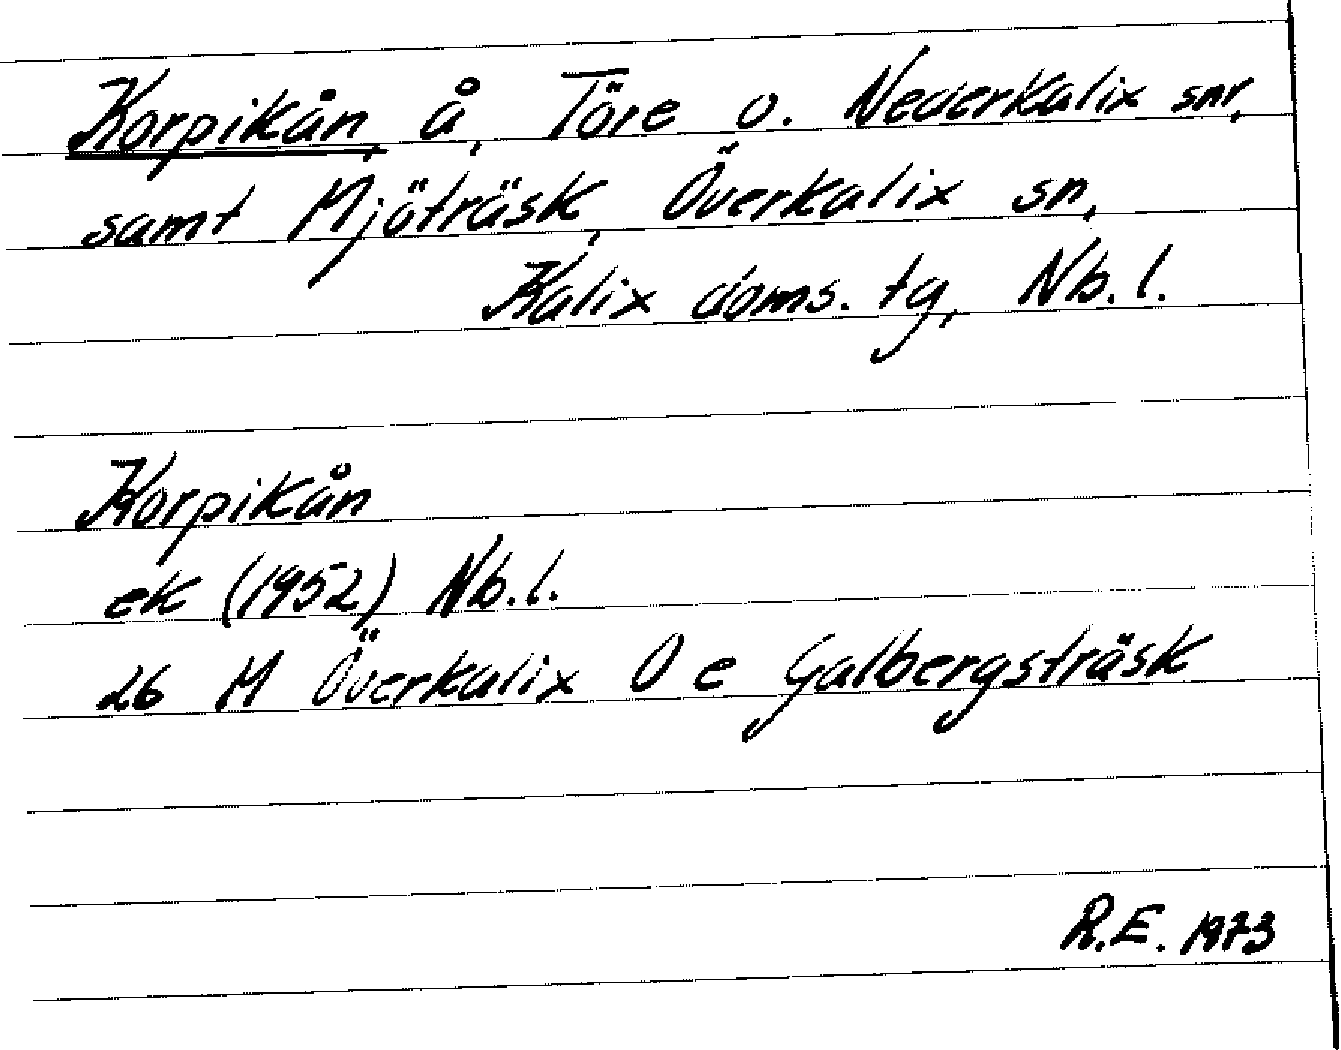 Korpikån, å, Töre o. Nederkalix snr,
samt Mjöträsk, Överkalix sn,
Kalix doms. tg, Nb. l.
Korpikån
ek (1952) Nb. l.
26 M Överkalix O e Galbergsträsk
R.E. 1973